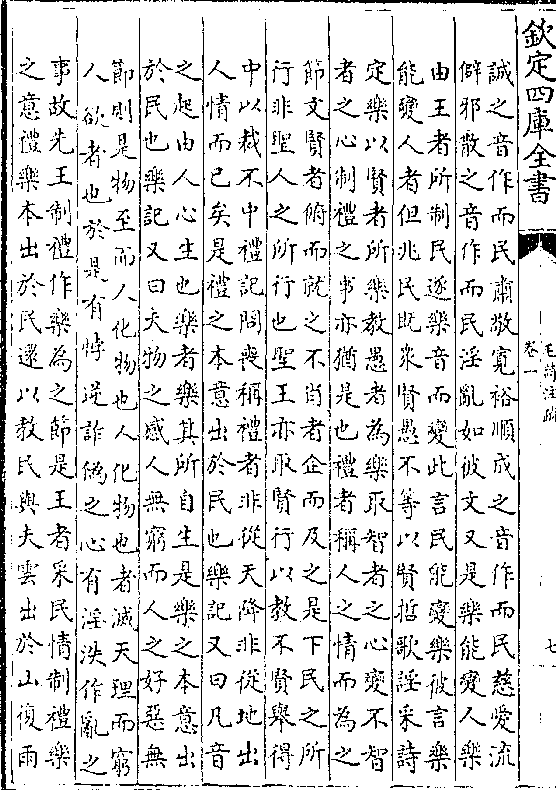 欽定四庫全書
毛詩注疏
卷一
七
誠之音作而民肅敬寛裕順成之音作而民慈愛流
僻邪散之音作而民淫亂如彼文又是樂能變人樂
由王者所制民逐樂音而變此言民能變樂彼言樂
能變人者但兆民既衆賢愚不等以賢哲歌謡采詩
定樂以賢者所樂教愚者為樂取智者之心變不智
者之心制禮之事亦猶是也禮者稱人之情而為之
節文賢者俯而就之不肖者企而及之是下民之所
行非聖人之所行也聖王亦取賢行以教不賢舉得
中以裁不中禮記問喪稱禮者非從天降非從地出
人情而已矣是禮之本意出於民也樂記又曰凡音
之起由人心生也樂者樂其所自生是樂之本意出
於民也樂記又曰夫物之感人無窮而人之好惡無
節則是物至而人化物也人化物也者滅天理而窮
人欲者也於是有悖逆詐偽之心有淫泆作亂之
事故先王制禮作樂為之節是王者采民情制禮樂
之意禮樂本出於民還以教民與夫雲出於山復雨